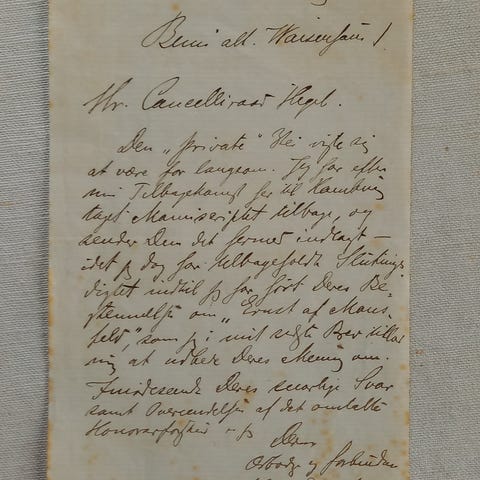 Beim alt. Waisenhaus 1
Hr. Cancelliraad Hegel.
Den „private" Vei viste sig
at være for langsom. Jeg har efter
min Tilbagekomst her til Hamburg
taget Manuscriptet tilbage, og
sender Dem det hermed indlagt –
idet jeg dog har tilbageholdt Slutnings
digtet indtil jeg har hørt Deres Be-
stemmelse om „Ernst af Mans-
feld", som jeg i mit sidste Brev tillod
mig at udbede Deres Mening om.
Imødeseende Deres snarlige Svar
samt Oversendelsen af det omtalte
Honorar forbliver jeg
Deres
Ærbødig og forbindtl